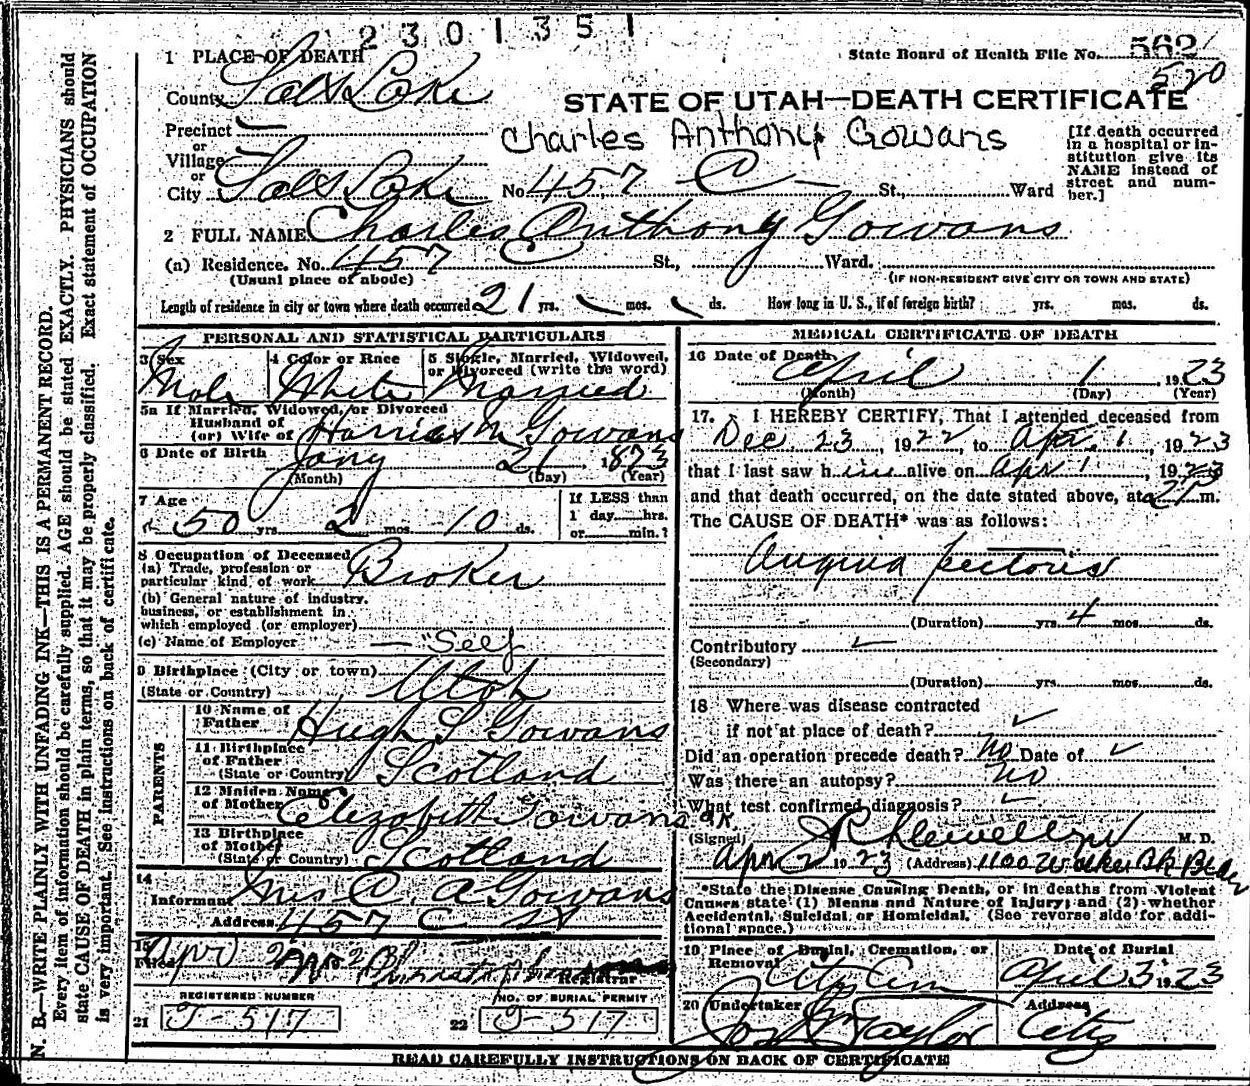 2 3 0 1 3 5 1
State Board of Health File No. 562
520
1 PLACE OF DEATH
County Salt Lake
STATE OF UTAH—DEATH CERTIFICATE
Charles Anthony Gowans
Precinct
or
Village
or
City Salt Lake No. 457 C St., Ward
[If death occurred in a hospital or in-
stitution give its
NAME instead of
street and num-
ber.]
2 FULL NAME Charles Anthony Gowans
(a) Residence. No. 457 C St., Ward.
(Usual place of abode) (IF NON-RESIDENT GIVE CITY OR TOWN AND STATE)
Length of residence in city or town where death occurred 21 yrs. mos. ds. How long in U. S., if of foreign birth? yrs. mos. ds.
PERSONAL AND STATISTICAL PARTICULARS
3 Sex Male
4 Color or Race White
5 Single, Married, Widowed,
or Divorced (write the word)
Married
5a If Married, Widowed, or Divorced
Husband of
(or) Wife of Harriet N Gowans
6 Date of Birth Jany 21 1873
(Month) (Day) (Year)
7 Age 50 yrs. 2 mos. 10 ds.
If LESS than
1 day hrs.
or min.?
8 Occupation of Deceased
(a) Trade, profession or
particular kind of work Broker
(b) General nature of industry,
business, or establishment in
which employed (or employer)
(c) Name of Employer — "Self
9 Birthplace (City or town)
(State or Country) Utah
PARENTS
10 Name of
Father Hugh S Gowans
11 Birthplace
of Father
(State or Country) Scotland
12 Maiden Name
of Mother Elizabeth Gowans
13 Birthplace
of Mother
(State or Country) Scotland
14
Informant Mrs C. A Gowans
Address 457 C St
15
Filed Apr 2
Registrar
REGISTERED NUMBER
21 J-517
NO. OF BURIAL PERMIT
22 J-517
MEDICAL CERTIFICATE OF DEATH
16 Date of Death April 1 1923
(Month) (Day) (Year)
17. I HEREBY CERTIFY, That I attended deceased from
Dec. 23, 1922, to Apr. 1, 1923
that I last saw him alive on Apr 1, 1923
and that death occurred, on the date stated above, at m.
The CAUSE OF DEATH* was as follows:
Angina pectoris
(Duration) yrs. 4 mos. ds.
Contributory
(Secondary)
(Duration) yrs. mos. ds.
18 Where was disease contracted
if not at place of death?
Did an operation precede death? no Date of
Was there an autopsy? no
What test confirmed diagnosis?
(Signed) Llewellyn M. D.
Apr 2 1923 (Address) 1100 Walker Bk Bldg
*State the Disease Causing Death, or in deaths from Violent
Causes state (1) Means and Nature of Injury; and (2) whether
Accidental, Suicidal or Homicidal. (See reverse side for addi-
tional space.)
19 Place of Burial, Cremation, or
Removal City Cem
Date of Burial
April 3 1923
20 Undertaker Jos Wm Taylor
Address
City
READ CAREFULLY INSTRUCTIONS ON BACK OF CERTIFICATE
N. B.—WRITE PLAINLY WITH UNFADING INK—THIS IS A PERMANENT RECORD.
Every item of information should be carefully supplied. AGE should be stated EXACTLY. PHYSICIANS should
state CAUSE OF DEATH in plain terms, so that it may be properly classified. Exact statement of OCCUPATION
is very important. See instructions on back of certificate.